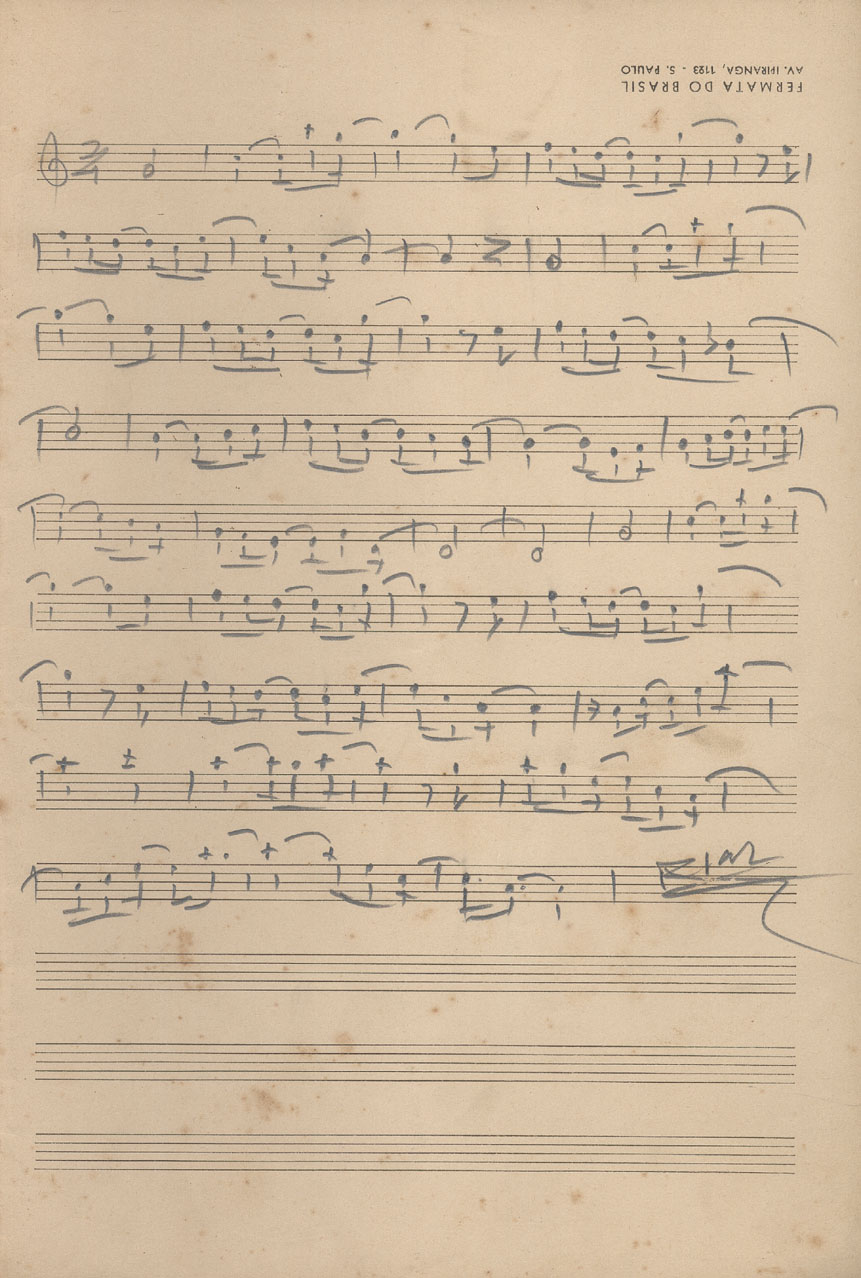 FERMATA DO BRASIL
AV. IPIRANGA, 1123 - S. PAULO
2/4